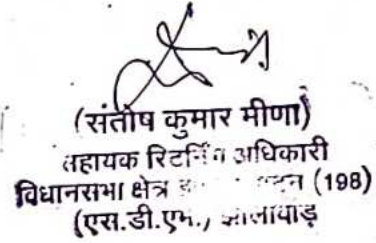 (संतोष कुमार मीणा)
सहायक रिटर्निंग अधिकारी
विधानसभा क्षेत्र (198)
(एस.डी.एम., झालावाड़